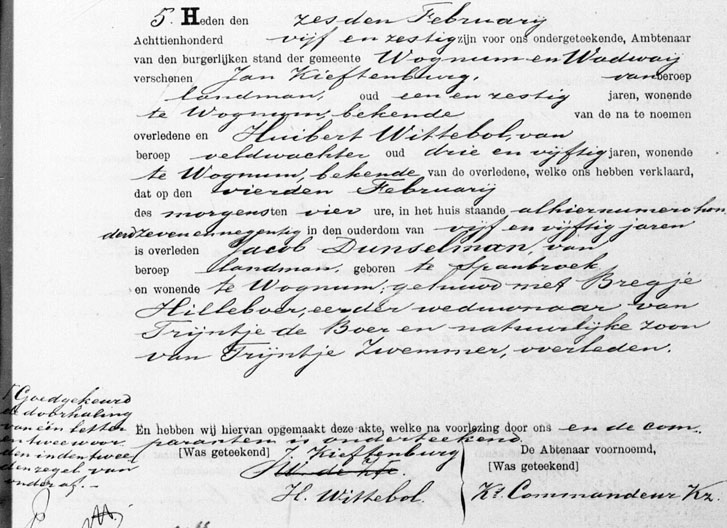 5. Heden den zesden Februarij
Achttienhonderd vijf en zestig zijn voor ons ondergeteekende, Ambtenaar
van den burgerlijken stand der gemeente Wognum en Wadwaij
verschenen Jan Kieftenburg, van beroep
landman, oud een en zestig jaren, wonende
te Wognum, bekende van de na te noemen
overledene en Huibert Wittebol, van
beroep veldwachter oud drie en vijftig jaren, wonende
te Wognum, bekende van de overledene, welke ons hebben verklaard,
dat op den vierden Februarij
des morgens ten vier ure, in het huis staande alhier numero hon
derd zeven en negentig in den ouderdom van vijf en vijftig jaren
is overleden Jacob Dunselman, van
beroep landman, geboren te Spanbroek
en wonende te Wognum, gehuwd met Bregje
Hilleboer, eerder weduwnaar van
Trijntje de Boer en natuurlijke zoon
van Trijntje Zwemmer, overleden.
Goedgekeurd
de doorhaling
van één letter
en twee woor
den in den twee
den regel van
onder af. -
En hebben wij hiervan opgemaakt deze akte, welke na voorlezing door ons en de com-
paranten is onderteekend.
[Was geteekend] J. Kieftenburg
H. Wittebol.
De Abtenaar voornoemd,
[Was geteekend]
Ks. Commandeur Kz.